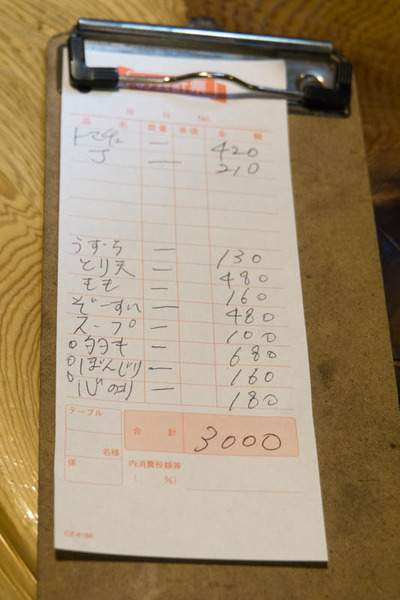 月 日 No.
品 名 数量 単価 金 額
一 420
J 一 210
うずら 一 130
とり天 一 480
もも 一 160
ぞーすい 一 480
スープ 一 100
一 680
ぼんじり 一 160
一 180
テーブル
名様
係
合 計 3000
内消費税額等
( %)